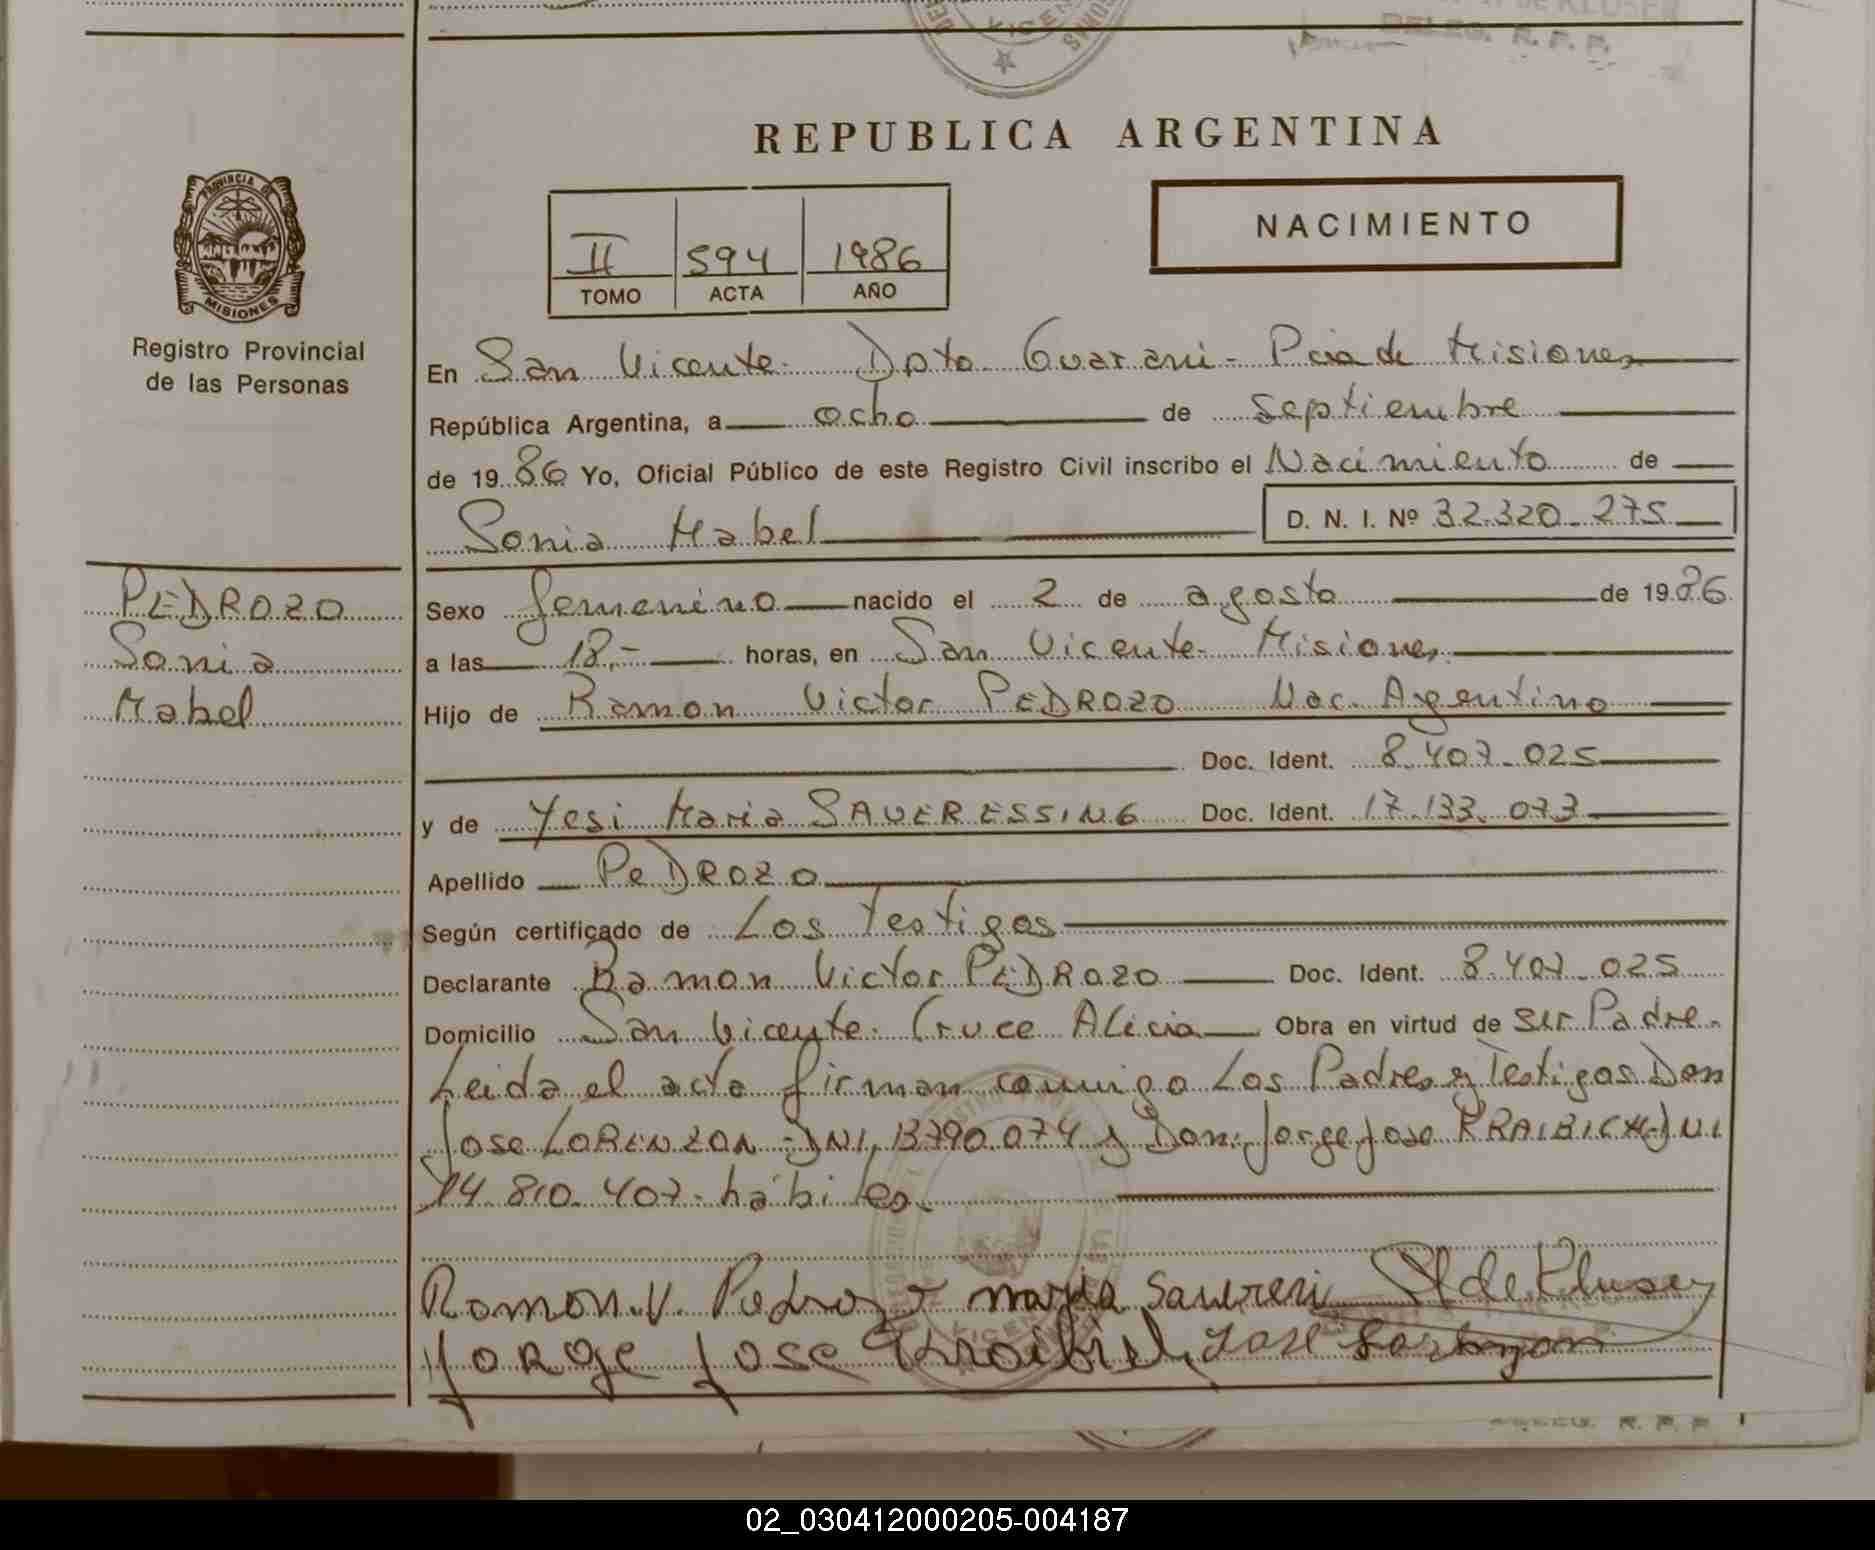 DELEG. R. P. P.
REPUBLICA ARGENTINA
PROVINCIA DE
MISIONES
Registro Provincial
de las Personas
NACIMIENTO
II 594 1986
TOMO ACTA AÑO
En San Vicente. Dpto Guarani - Pcia de Misiones
República Argentina, a ocho de septiembre
de 1986 Yo, Oficial Público de este Registro Civil inscribo el Nacimiento de
Sonia Mabel D. N. I. Nº 32.320.275
PEDROZO
Sonia
Mabel
Sexo femenino nacido el 2 de agosto de 1986
a las 18,- horas, en San Vicente. Misiones
Hijo de Ramon Victor PEDROZO Nac. Argentino
Doc. Ident. 8.407.025
y de Yesi Maria SAUERESSING Doc. Ident. 17.133.073
Apellido PEDROZO
Según certificado de Los Testigos
Declarante Ramon Victor PEDROZO Doc. Ident. 8.407.025
Domicilio San Vicente. Cruce Alicia Obra en virtud de ser Padre.
Leida el acta firman conmigo Los Padres y Testigos Don
Jose LORENZON - DNI, 13790.074 y Don Jorge Jose KRAIBICH - DNI
14.810.407 - hábiles.
Ramon. V. Pedrozo maria
Jorge Jose Kraibich Jose
02_030412000205-004187